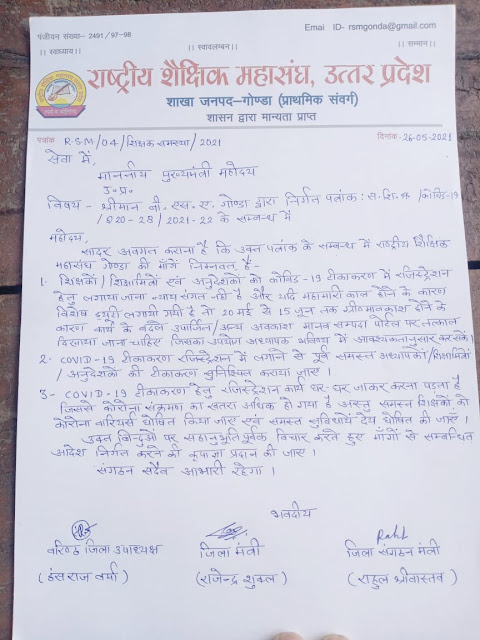 पंजीयन संख्या- 2491/97-98
Emai ID- rsmgonda@gmail.com
।। स्वाध्याय।।
।। स्वावलम्बन।।
।। सम्मान।।
राष्ट्रीय शैक्षिक महासंघ, उत्तर प्रदेश
शाखा जनपद–गोण्डा (प्राथमिक संवर्ग)
शासन द्वारा मान्यता प्राप्त
पत्रांक R.S.M/04/शिक्षक समस्या/2021
दिनांक: 26-05-2021
सेवा में,
माननीय मुख्यमंत्री महोदय
उ० प्र०
विषय - श्रीमान बी. एस. ए. गोण्डा द्वारा निर्गत पत्रांक: स. शि. अ /कोविड-19
/820-28/2021-22 के सम्बन्ध में
महोदय,
सादर अवगत कराना है कि उक्त पत्रांक के सम्बन्ध में राष्ट्रीय शैक्षिक
महासंघ गोण्डा की माँगें निम्नवत् हैं-
1. शिक्षकों/ शिक्षामित्रों एवं अनुदेशकों को कोविड-19 टीकाकरण में रजिस्ट्रेशन
हेतु लगाया जाना न्याय संगत नहीं है और यदि महामारी काल होने के कारण
विशेष ड्यूटी लगायी गयी है तो 20 मई से 15 जून तक ग्रीष्मावकाश होने के
कारण कार्य के बदले उपार्जित/अन्य अवकाश मानव सम्पदा पोर्टल पर तत्काल
दिलाया जाना चाहिए जिसका उपयोग अध्यापक भविष्य में आवश्यकतानुसार कर सकें।
2- COVID-19 टीकाकरण रजिस्ट्रेशन में लगाने से पूर्व समस्त अध्यापकों/शिक्षामित्रों
/अनुदेशकों की टीकाकरण सुनिश्चित कराया जाए।
3- COVID-19 टीकाकरण हेतु रजिस्ट्रेशन कार्य घर-घर जाकर करना पड़ता है
जिससे कोरोना संक्रमण का खतरा अधिक हो गया है अस्तु समस्त शिक्षकों को
कोरोना वारियर्स घोषित किया जाए एवं समस्त सुविधायें देय घोषित की जाएँ।
उक्त बिन्दुओं पर सहानुभूति पूर्वक विचार करते हुए माँगों से सम्बन्धित
आदेश निर्गत करने की कृपाज्ञा प्रदान की जाए।
संगठन सदैव आभारी रहेगा।
भवदीय
Rahul
वरिष्ठ जिला उपाध्यक्ष
जिला मंत्री
जिला संगठन मंत्री
(हंसराज वर्मा)
(राजेन्द्र शुक्ल)
(राहुल श्रीवास्तव)